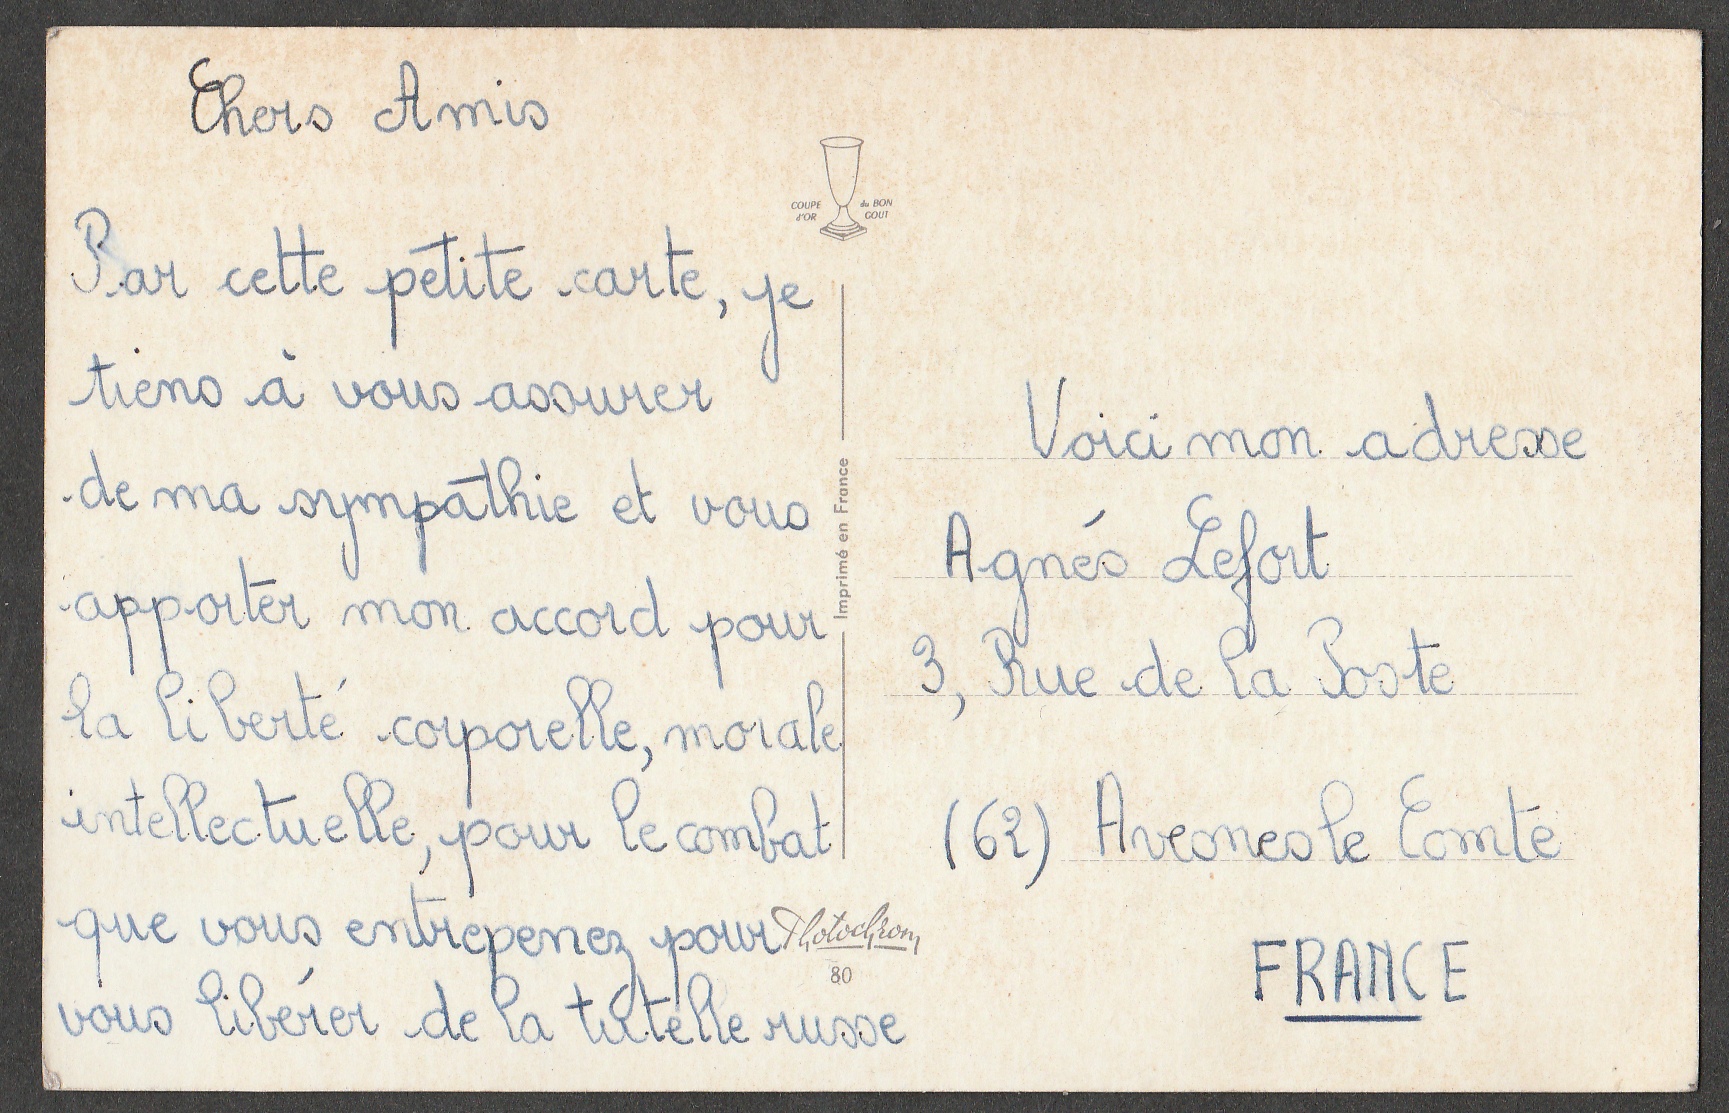 Chers Amis
Par cette petite carte, je
tiens à vous assurer
de ma sympathie et vous
apporter mon accord pour
la liberté corporelle, morale
intellectuelle, pour le combat
que vous entrepenez pour
vous libérer de la tutelle russe
COUPE d'OR du BON GOUT
Imprimé en France
Photochrom
80
Voici mon adresse
Agnés Lefort
3, Rue de la Poste
(62) Avesnes le Comte
FRANCE